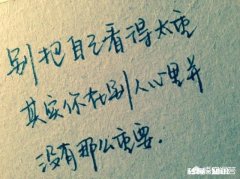 别把自己看得太重
其实你在别人心里并
没有那么重要.